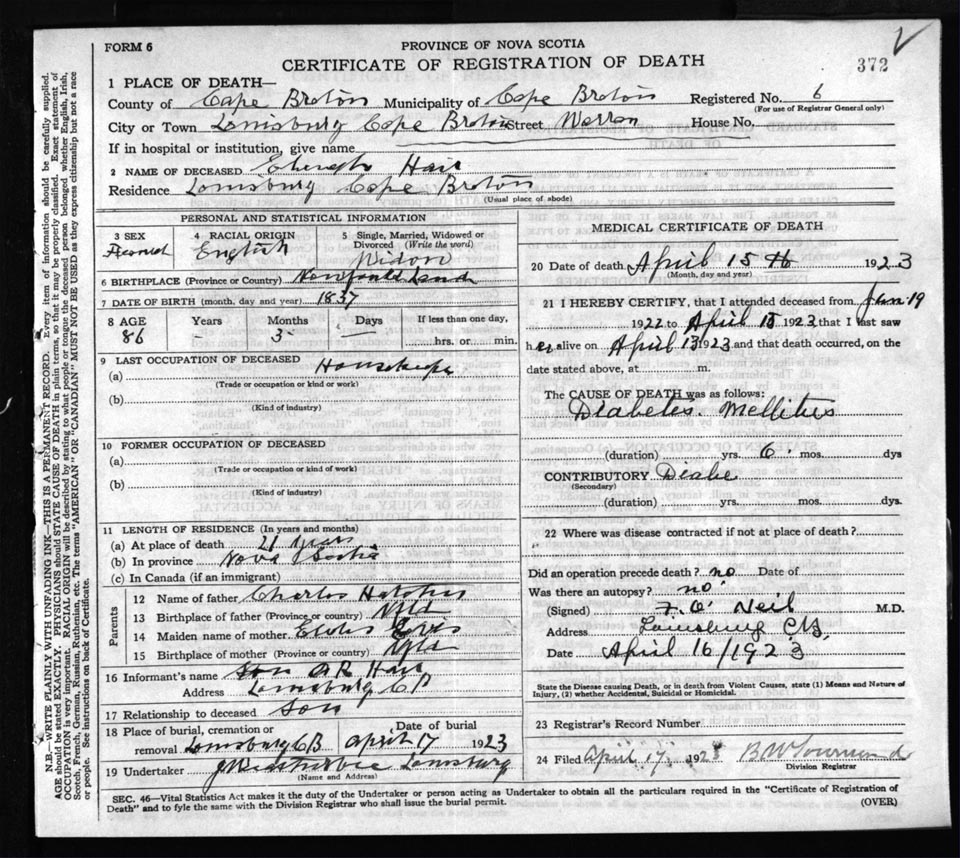 FORM 6
PROVINCE OF NOVA SCOTIA
CERTIFICATE OF REGISTRATION OF DEATH
372
1 PLACE OF DEATH—
County of Cape Breton Municipality of Cape Breton Registered No. 6
(For use of Registrar General only)
City or Town Louisburg Cape Breton Street Warren House No.
If in hospital or institution, give name
2 NAME OF DECEASED Hair
Residence Louisburg Cape Breton
(Usual place of abode)
PERSONAL AND STATISTICAL INFORMATION
3 SEX
4 RACIAL ORIGIN
English
5 Single, Married, Widowed or Divorced (Write the word)
Widow
6 BIRTHPLACE (Province or Country) Newfoundland
7 DATE OF BIRTH (month, day and year) 1837
8 AGE Years Months Days If less than one day,
86 3 hrs. or min.
9 LAST OCCUPATION OF DECEASED
(a)
(Trade or occupation or kind or work)
(b)
(Kind of industry)
10 FORMER OCCUPATION OF DECEASED
(a)
(Trade or occupation or kind of work)
(b)
(Kind of industry)
11 LENGTH OF RESIDENCE (In years and months)
(a) At place of death 21 years
(b) In province Nova Scotia
(c) In Canada (if an immigrant)
Parents
12 Name of father Charles
13 Birthplace of father (Province or country) Nfld
14 Maiden name of mother
15 Birthplace of mother (Province or country) Nfld
16 Informant's name son Hair
Address Louisburg CB
17 Relationship to deceased son
18 Place of burial, cremation or removal Louisburg CB
Date of burial April 17 1923
19 Undertaker Louisburg
(Name and Address)
MEDICAL CERTIFICATE OF DEATH
20 Date of death April 15th 1923
(Month, day and year)
21 I HEREBY CERTIFY, that I attended deceased from Jan. 19
1922 to April 15 1923 that I last saw
her alive on April 13 1923 and that death occurred, on the
date stated above, at m.
The CAUSE OF DEATH was as follows:
Diabetes Mellitus
(duration) yrs. 6 mos. dys
CONTRIBUTORY
(Secondary)
(duration) yrs. mos. dys.
22 Where was disease contracted if not at place of death?
Did an operation precede death? no Date of
Was there an autopsy? no
(Signed) F. O' Neil M.D.
Address Louisburg C.B.
Date April 16/1923
State the Disease causing Death, or in death from Violent Causes, state (1) Means and Nature of Injury, (2) whether Accidental, Suicidal or Homicidal.
23 Registrar's Record Number
24 Filed April 17 1923
Division Registrar
SEC. 46—Vital Statistics Act makes it the duty of the Undertaker or person acting as Undertaker to obtain all the particulars required in the "Certificate of Registration of
Death" and to fyle the same with the Division Registrar who shall issue the burial permit.
(OVER)
N.B.—WRITE PLAINLY WITH UNFADING INK—THIS IS A PERMANENT RECORD. Every item of Information should be carefully supplied.
AGE should be stated EXACTLY. PHYSICIANS should STATE CAUSE OF DEATH in plain terms, so that it may be properly classified. Exact statement of
OCCUPATION is very important. RACIAL ORIGIN will be described by stating to what people or tongue the deceased person belonged whether English, Irish,
Scotch, French, German, Russian, Ruthenian, etc. The terms "AMERICAN" OR "CANADIAN" MUST NOT BE USED as they express citizenship but not a race
or people. See instructions on back of Certificate.